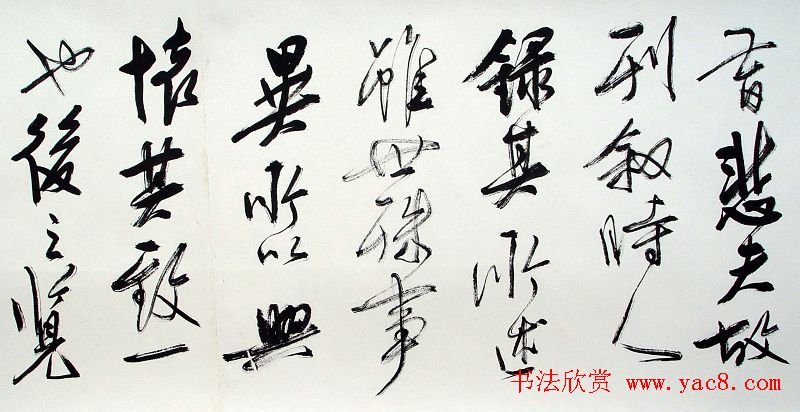 昔悲夫故
列叙時人
録其所述
雖世殊事
異所以興
懷其致一
也後之覽
书法欣赏 www.yac8.com